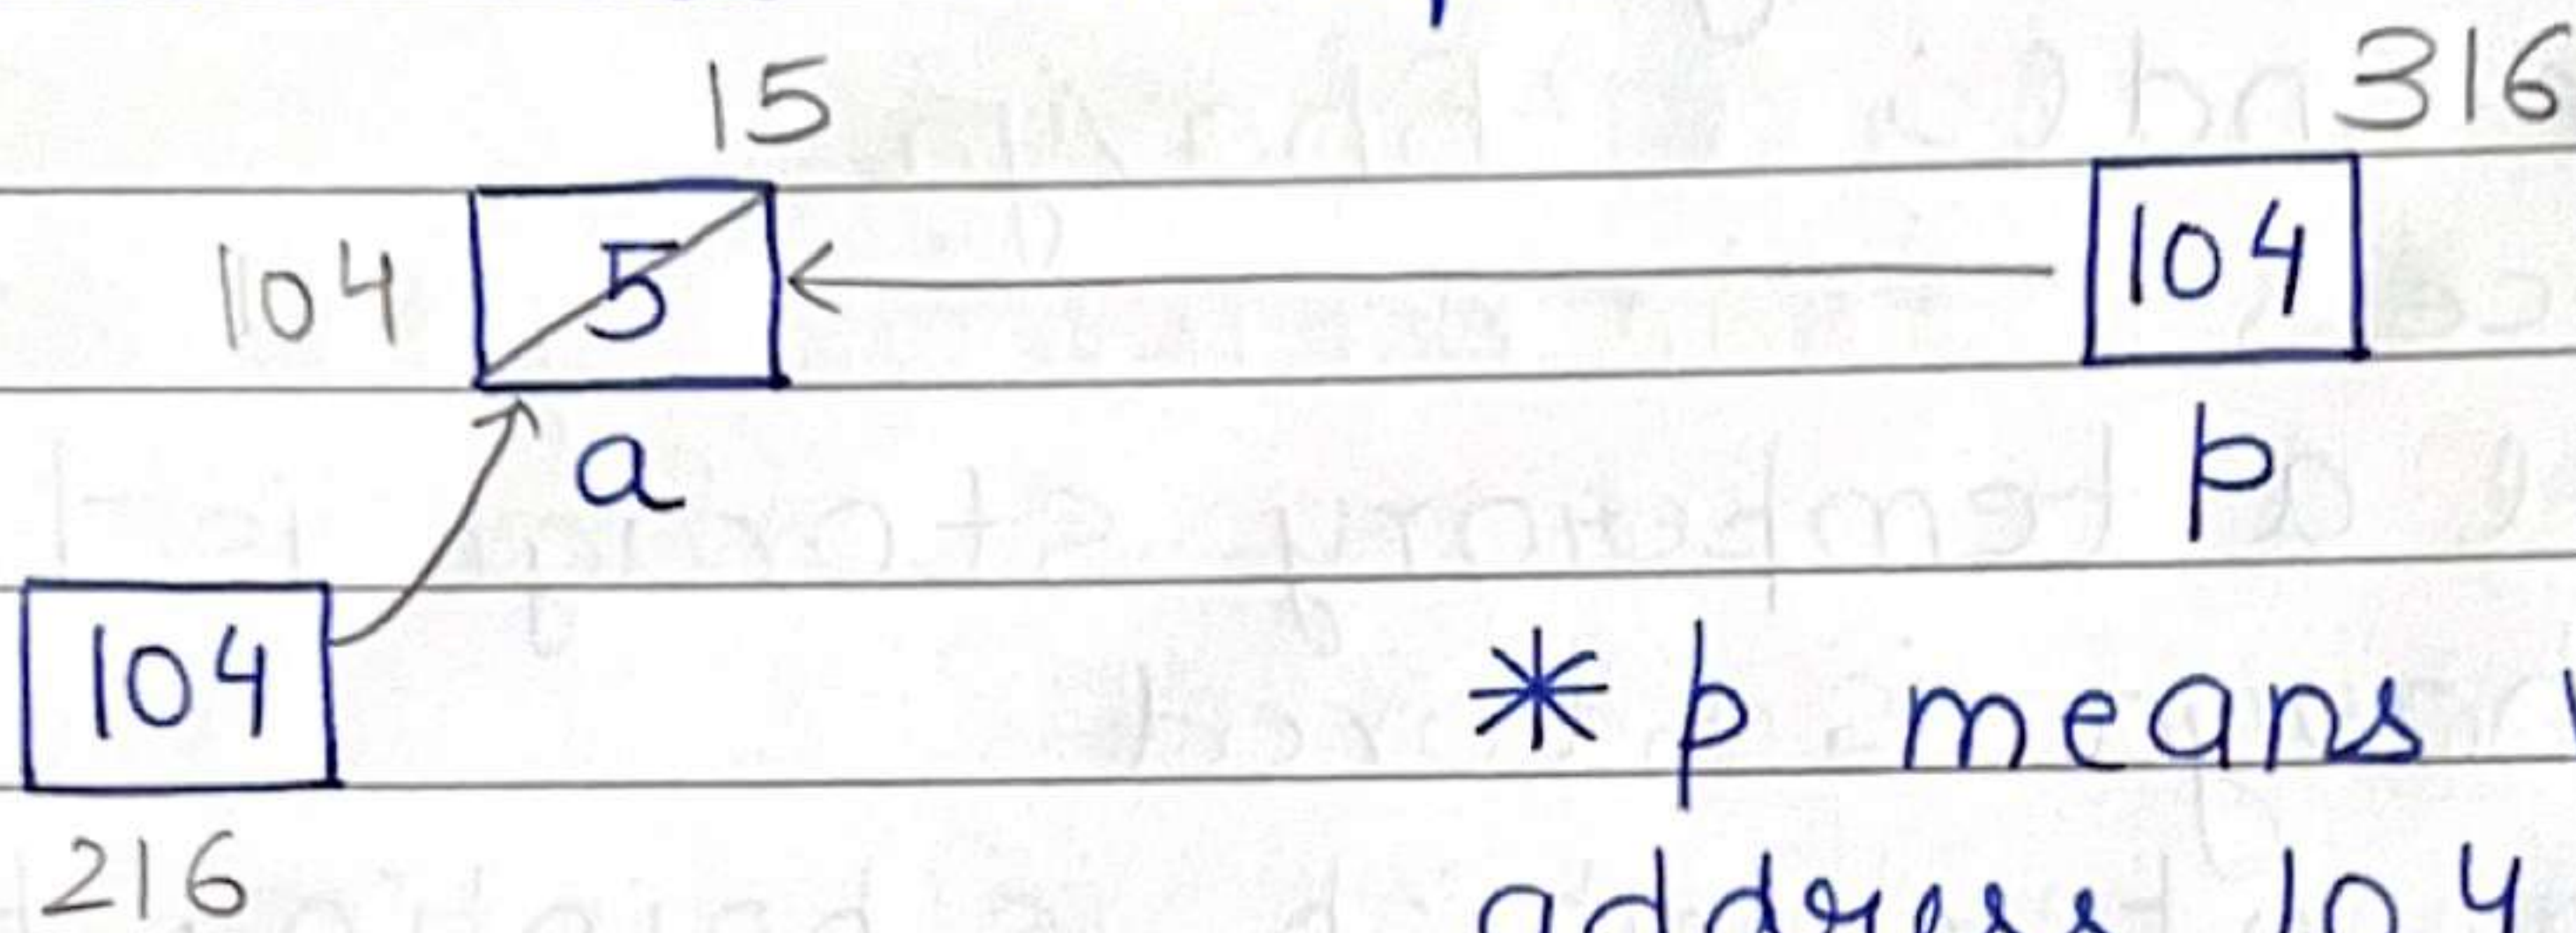 15 316
104 5 104
a p
104
* p means
216
address 104